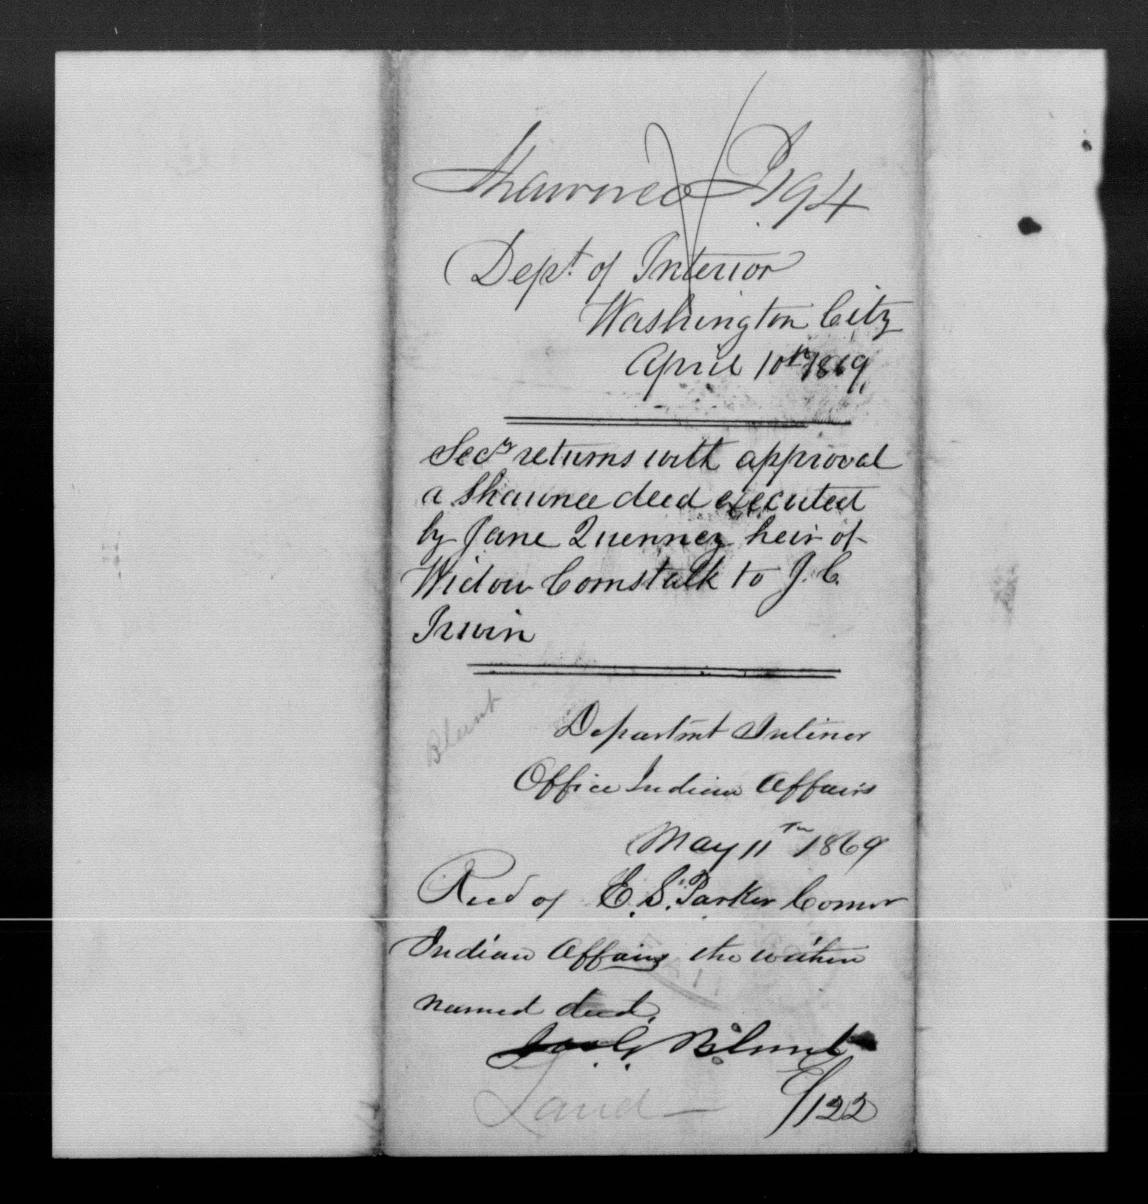 Shawnee I 194
Dept. of Interior
Washington City
April 10th 1869,
Secy returns with approval
a Shawnee deed executed
by Jane Quenney heir of
Widow Comstalk to J. C.
Irwin
Blunt
Departmt Interior
Office Indian Affairs
May 11th 1869
Recd of E. S. Parker Comor
Indian Affairs the within
named deed.
Jas G. Blunt
Land
122